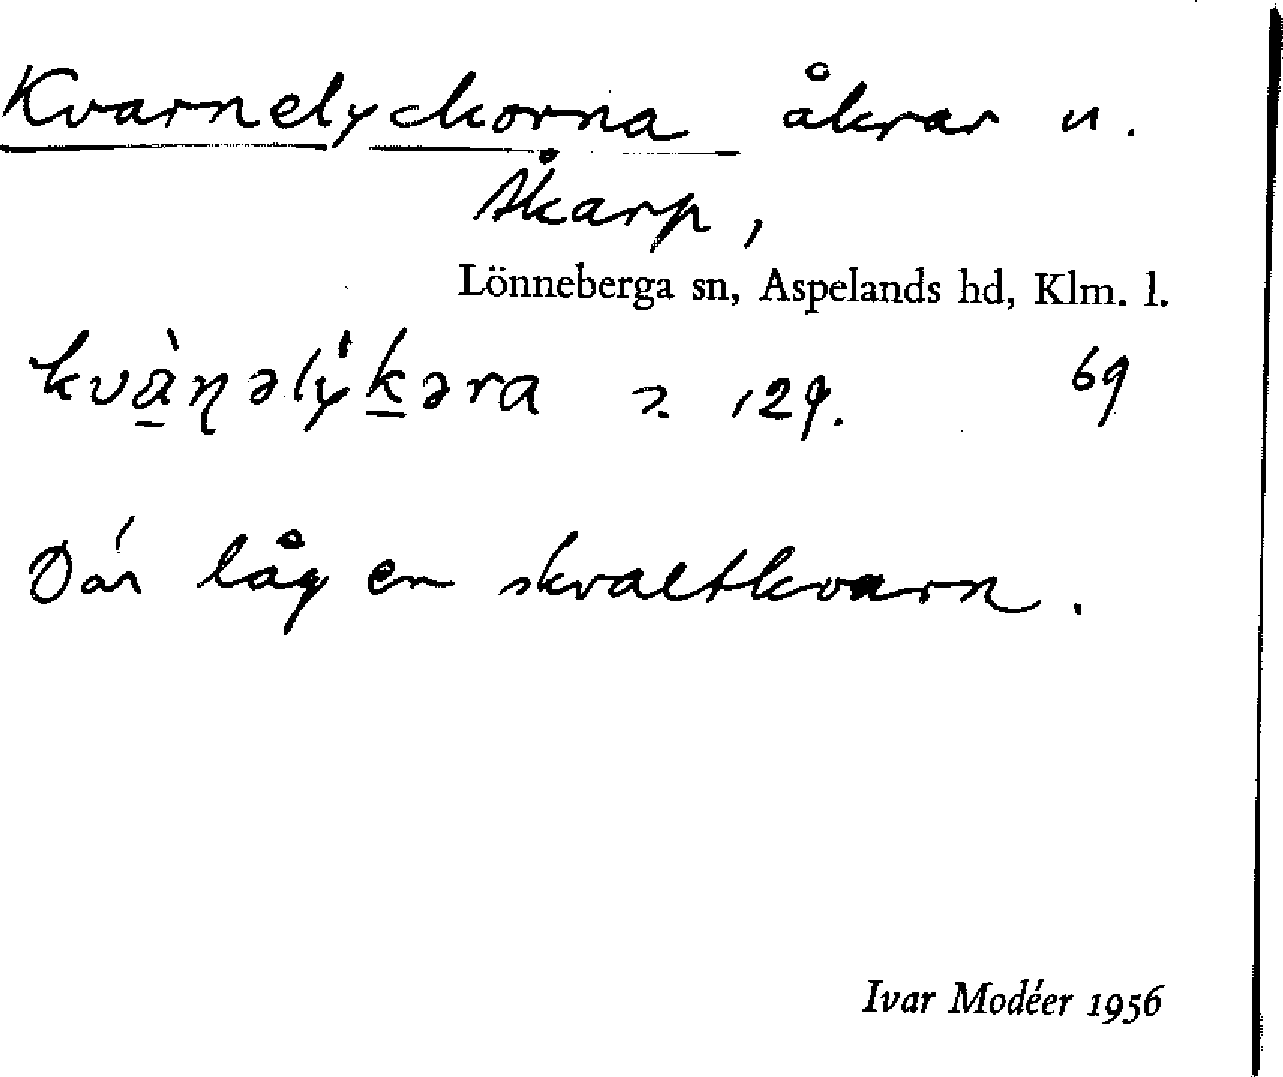 Kvarnelyckorna åkrar u.
Åkarp,
Lönneberga sn, Aspelands hd, Klm. l.
kvànəlýkəra 2. 129. 69
Där låg en skvaltkvarn.
Ivar Modéer 1956